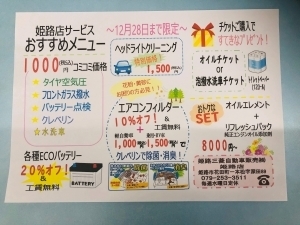 姫路店サービス
おすすめメニュー
～12月28日まで限定～
1000円(税込)コミコミ価格
★タイヤ空気圧
★フロントガラス撥水
★バッテリー点検
★クレベリン
☆水洗車
各種ECOバッテリー
20%オフ！
&工賃無料
BATTERY
ヘッドライトクリーニング
特別価格！
1,500円
エアコンフィルター
10%オフ！
&工賃無料
クレベリンで除菌・消臭！
チケットご購入で
すてきなプレゼント！
オイルチケット
or
泡撥水洗車チケット
おトクな
SET
オイルエレメント
+
リフレッシュパック
純正エンジンオイル添加剤
8000円～
姫路三菱自動車販売㈱
姫路店
079-253-3511
毎週水曜日定休